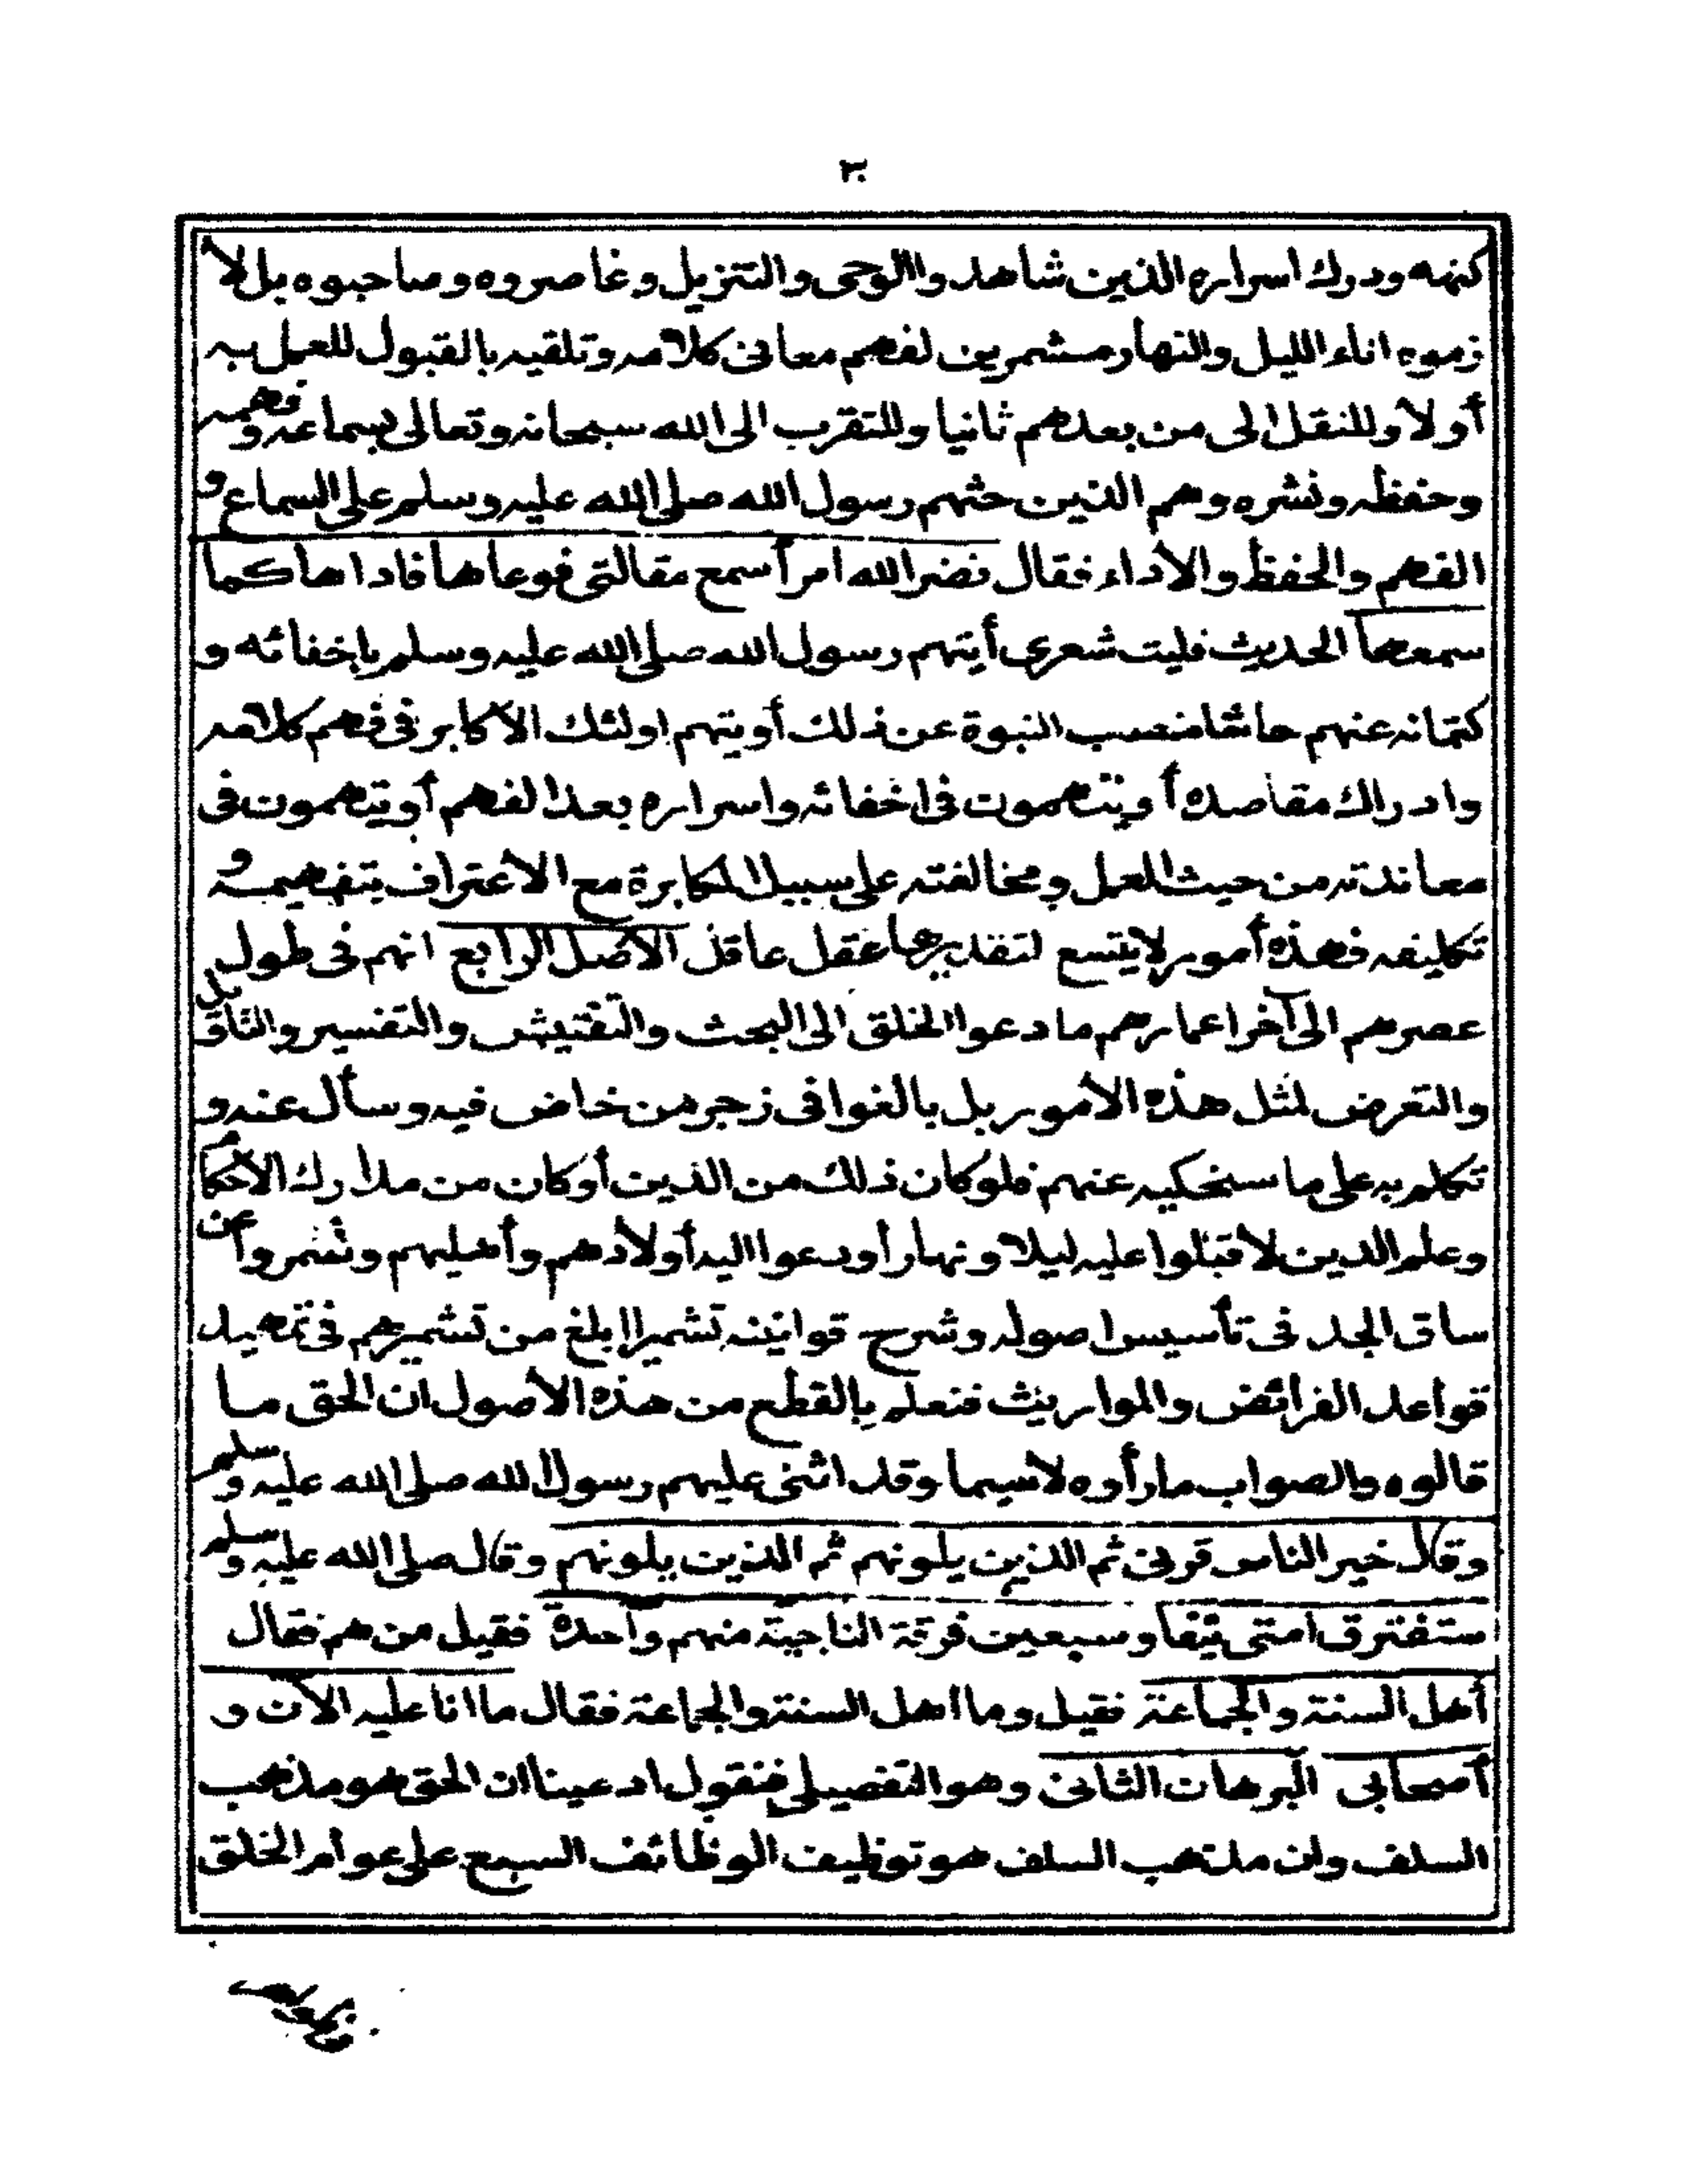 ٣٠
كنهه ودرك اسراره الذين شاهدوا الوحى والتنزيل وعاصروه وصاحبوه بل لا
زموه اناء الليل والنهار مشمرين لفهم معانى كلامه وتلقيه بالقبول للعمل به
أولا وللنقل الى من بعدهم ثانيا وللتقرب الى الله سبحانه وتعالى بسماعه وفهمه
وحفظه ونشره وهم الذين حثهم رسول الله صلى الله عليه وسلم على السماع و
الفهم والحفظ والأداء فقال نضر الله امرأ سمع مقالتى فوعاها فاداها كما
سمعها الحديث فليت شعرى أيتهم رسول الله صلى الله عليه وسلم باخفائه و
كتمانه عنهم حاشا منصب النبوة عن ذلك أو يتهم اولئك الأكابر فى فهم كلامه
وادراك مقاصده أو يتهمون فى اخفائه واسراره بعد الفهم أو يتهمون فى
معاندته من حيث العمل ومخالفته على سبيل المكابرة مع الاعتراف بتفهيمه و
تكليفه فهذه أمور لا يتسع لتقديرها عقل عاقل الأصل الرابع انهم فى طول
عصرهم الى آخر اعمارهم ما دعوا الخلق الى البحث والتفتيش والتفسير والتاويل
والتعرض لمثل هذه الأمور بل بالغوا فى زجر من خاض فيه وسأل عنه و
تكلم به على ما سنحكيه عنهم فلو كان ذلك من الدين أو كان من مدارك الأحكام
وعلم الدين لأقبلوا عليه ليلا ونهارا ودعوا اليه أولادهم وأهليهم وشمروا عن
ساق الجد فى تأسيس اصوله وشرح قوانينه تشميرا ابلغ من تشميرهم فى تمهيد
قواعد الفرائض والمواريث فنعلم بالقطع من هذه الأصول ان الحق ما
قالوه والصواب ما رأوه لا سيما وقد اثنى عليهم رسول الله صلى الله عليه وسلم
وقال خير الناس قرنى ثم الذين يلونهم ثم الذين يلونهم وقال صلى الله عليه وسلم
ستفترق أمتى نيفا وسبعين فرقة الناجية منهم واحدة فقيل من هم فقال
أهل السنة والجماعة فقيل وما اهل السنة والجماعة فقال ما انا عليه الآن و
أصحابى البرهان الثانى وهو التفصيلى فنقول ادعينا ان الحق هو مذهب
السلف وان مذهب السلف هو توظيف الوظائف السبع على عوام الخلق